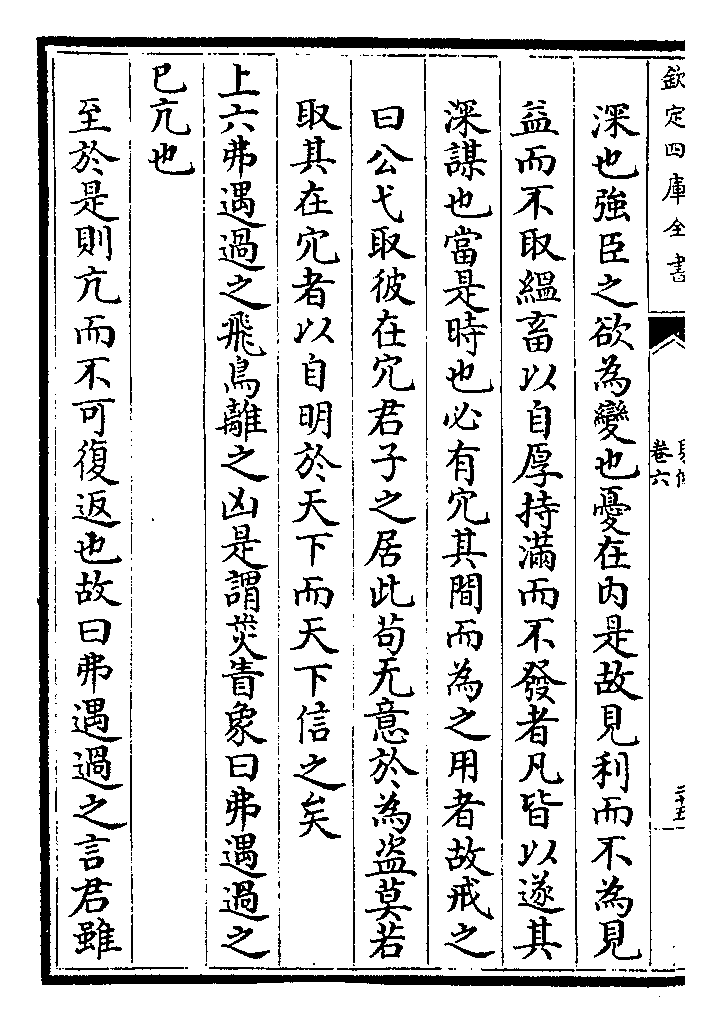 欽定四庫全書
卷六
深也強臣之欲為變也憂在内是故見利而不為見
益而不取緼畜以自厚持滿而不發者凡皆以遂其
深謀也當是時也必有宂其間而為之用者故戒之
曰公弋取彼在宂君子之居此苟无意於為盗莫若
取其在宂者以自明於天下而天下信之矣
上六弗遇過之飛鳥離之凶是謂烖眚象曰弗遇過之
已亢也
至於是則亢而不可復返也故曰弗遇過之言君雖